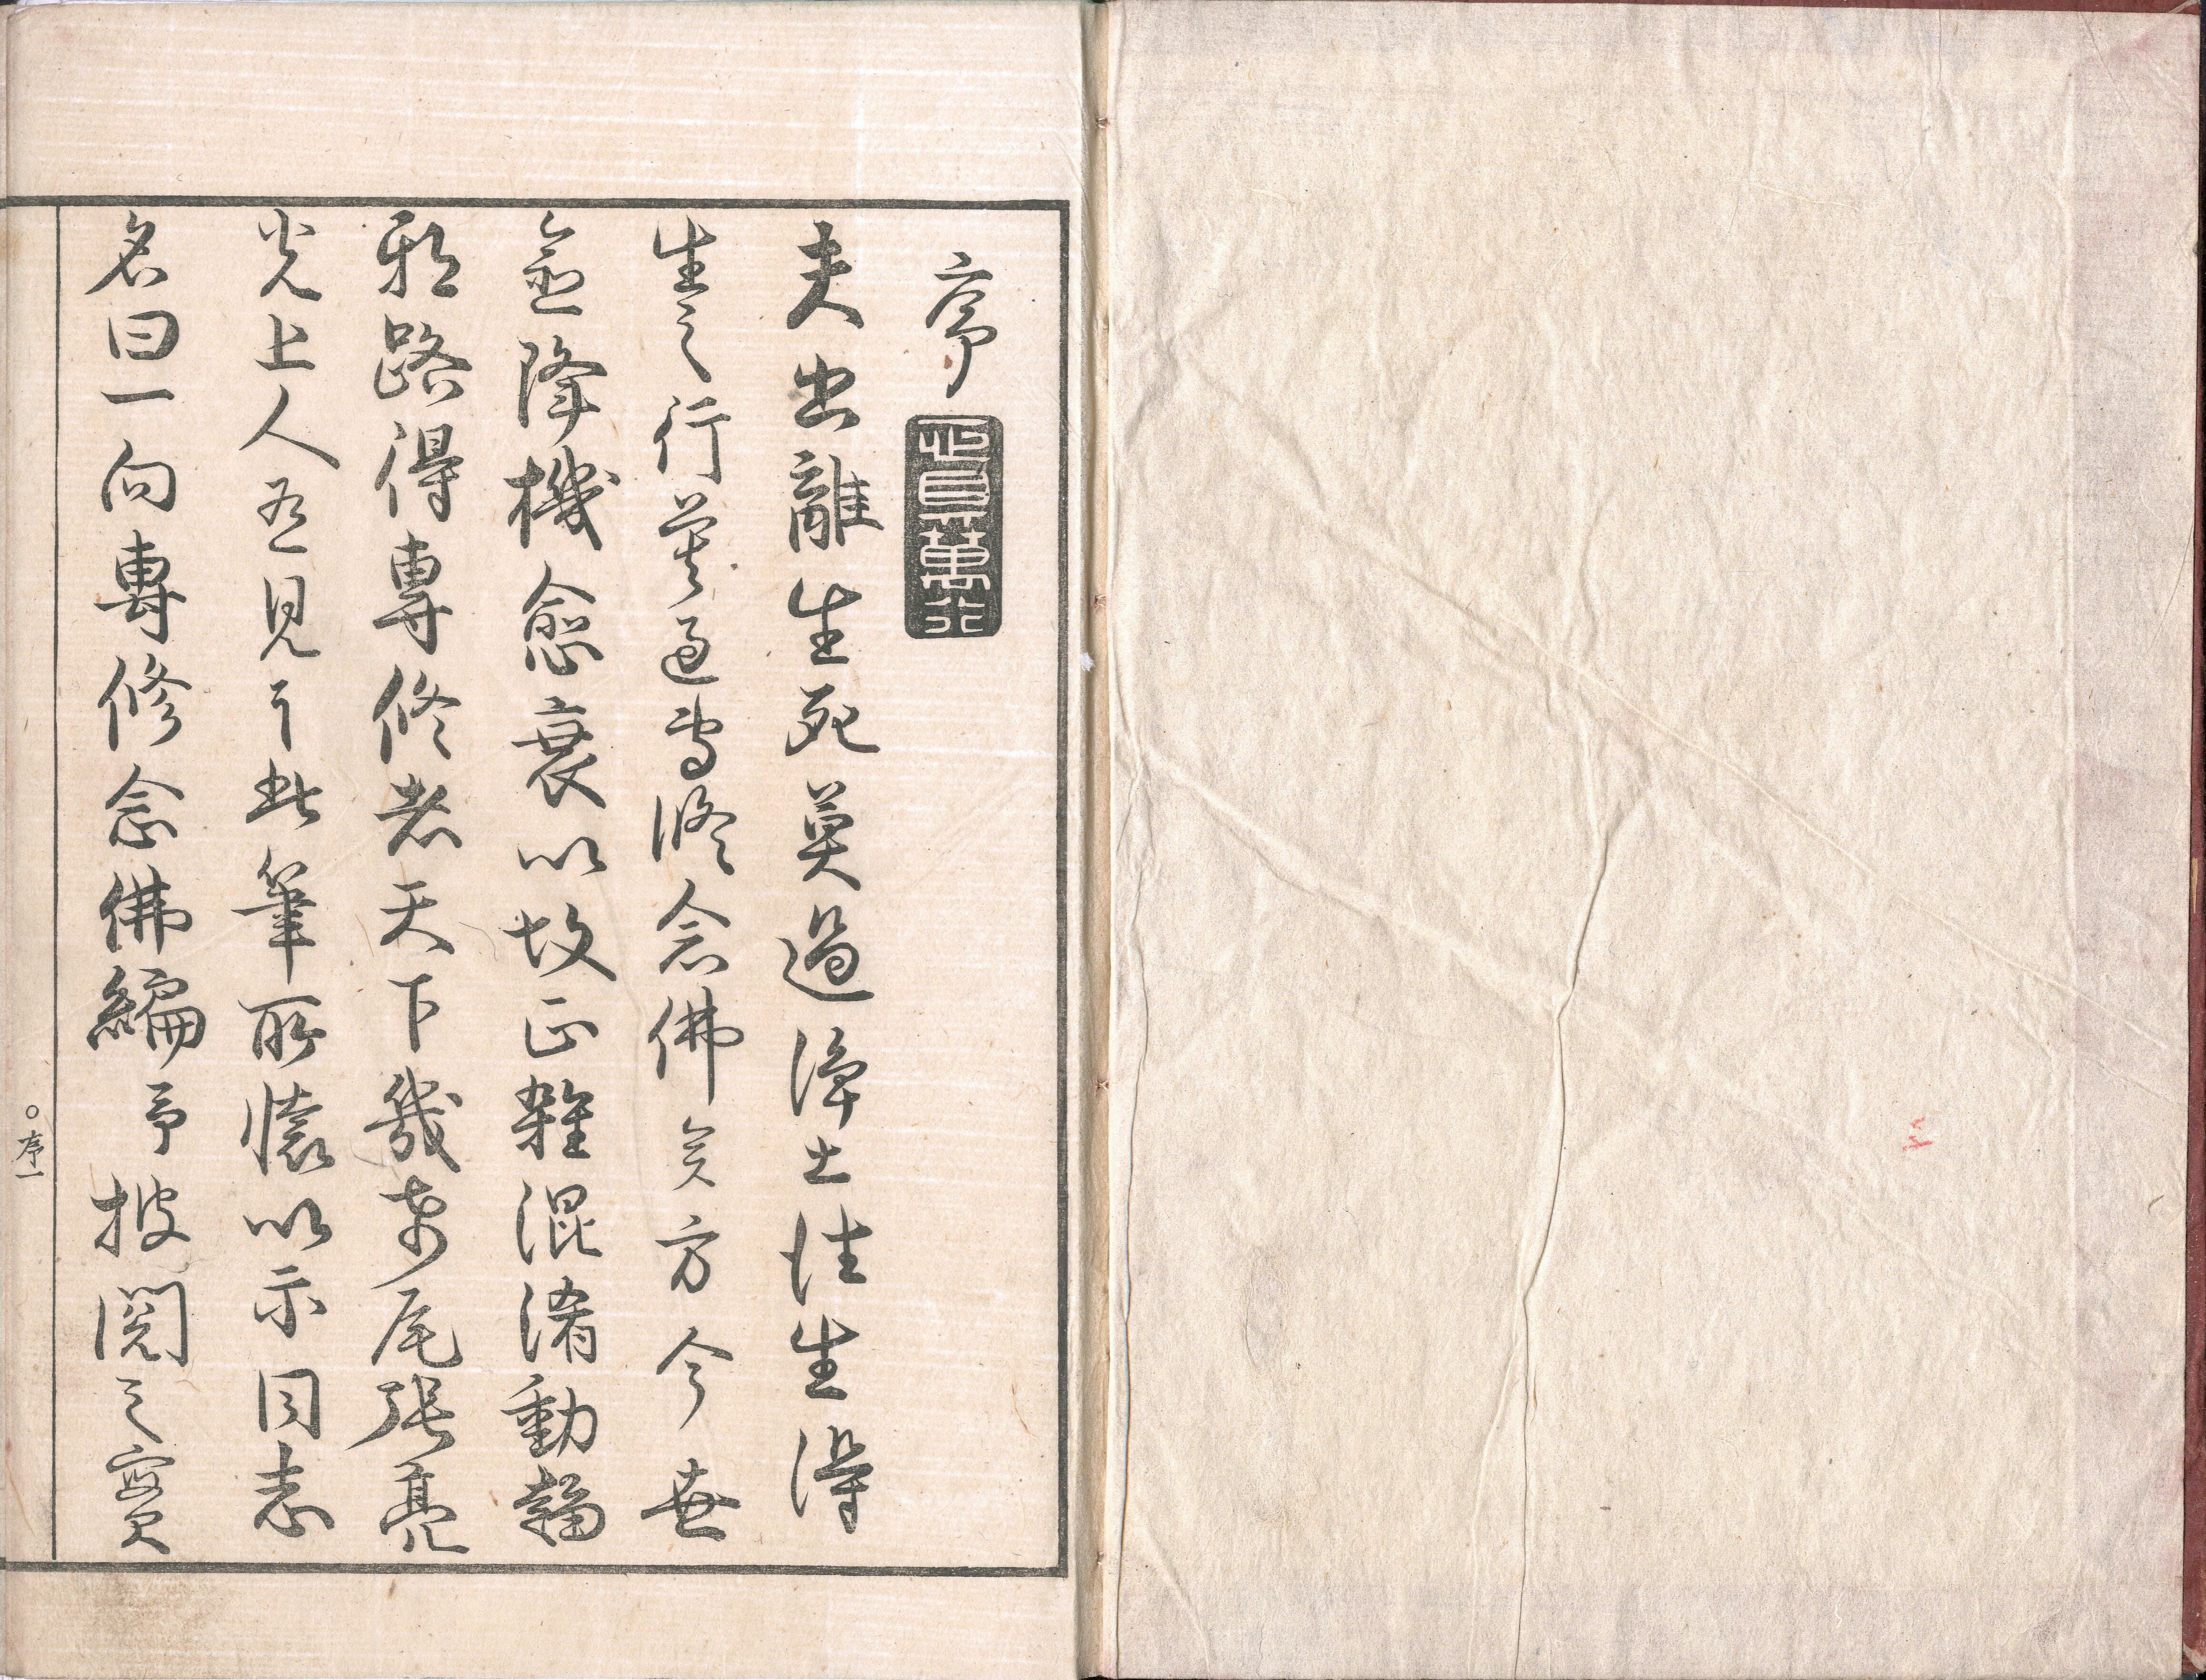 序
夫出離生死莫過淨土往生淨
生之行莫過專修念佛矣方今世
益降機愈衰以故正雜混淆動輪
邪路得專修者天下幾希尾張亮
光上人有見于此筆所懷以示同志
名曰一向專修念佛編予披閱之實
○序一